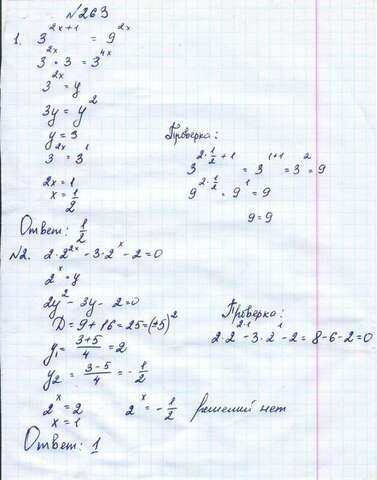 №263
1. 3^{2x+1} = 9^{2x}
3^{2x} · 3 = 3^{4x}
3^{2x} = y
3y = y^2
y = 3
3^{2x} = 3^1
2x = 1
x = 1/2
Проверка:
3^{2·1/2+1} = 3^{1+1} = 3^2 = 9
9^{2·1/2} = 9^1 = 9
9 = 9
Ответ: 1/2
№2. 2·2^{2x} - 3·2^x - 2 = 0
2^x = y
2y^2 - 3y - 2 = 0
D = 9 + 16 = 25 = (±5)^2
y_1 = (3+5)/4 = 2
y_2 = (3-5)/4 = -1/2
Проверка:
2·2^{2·1} - 3·2^1 - 2 = 8 - 6 - 2 = 0
2^x = 2 2^x = -1/2 решений нет
x = 1
Ответ: 1